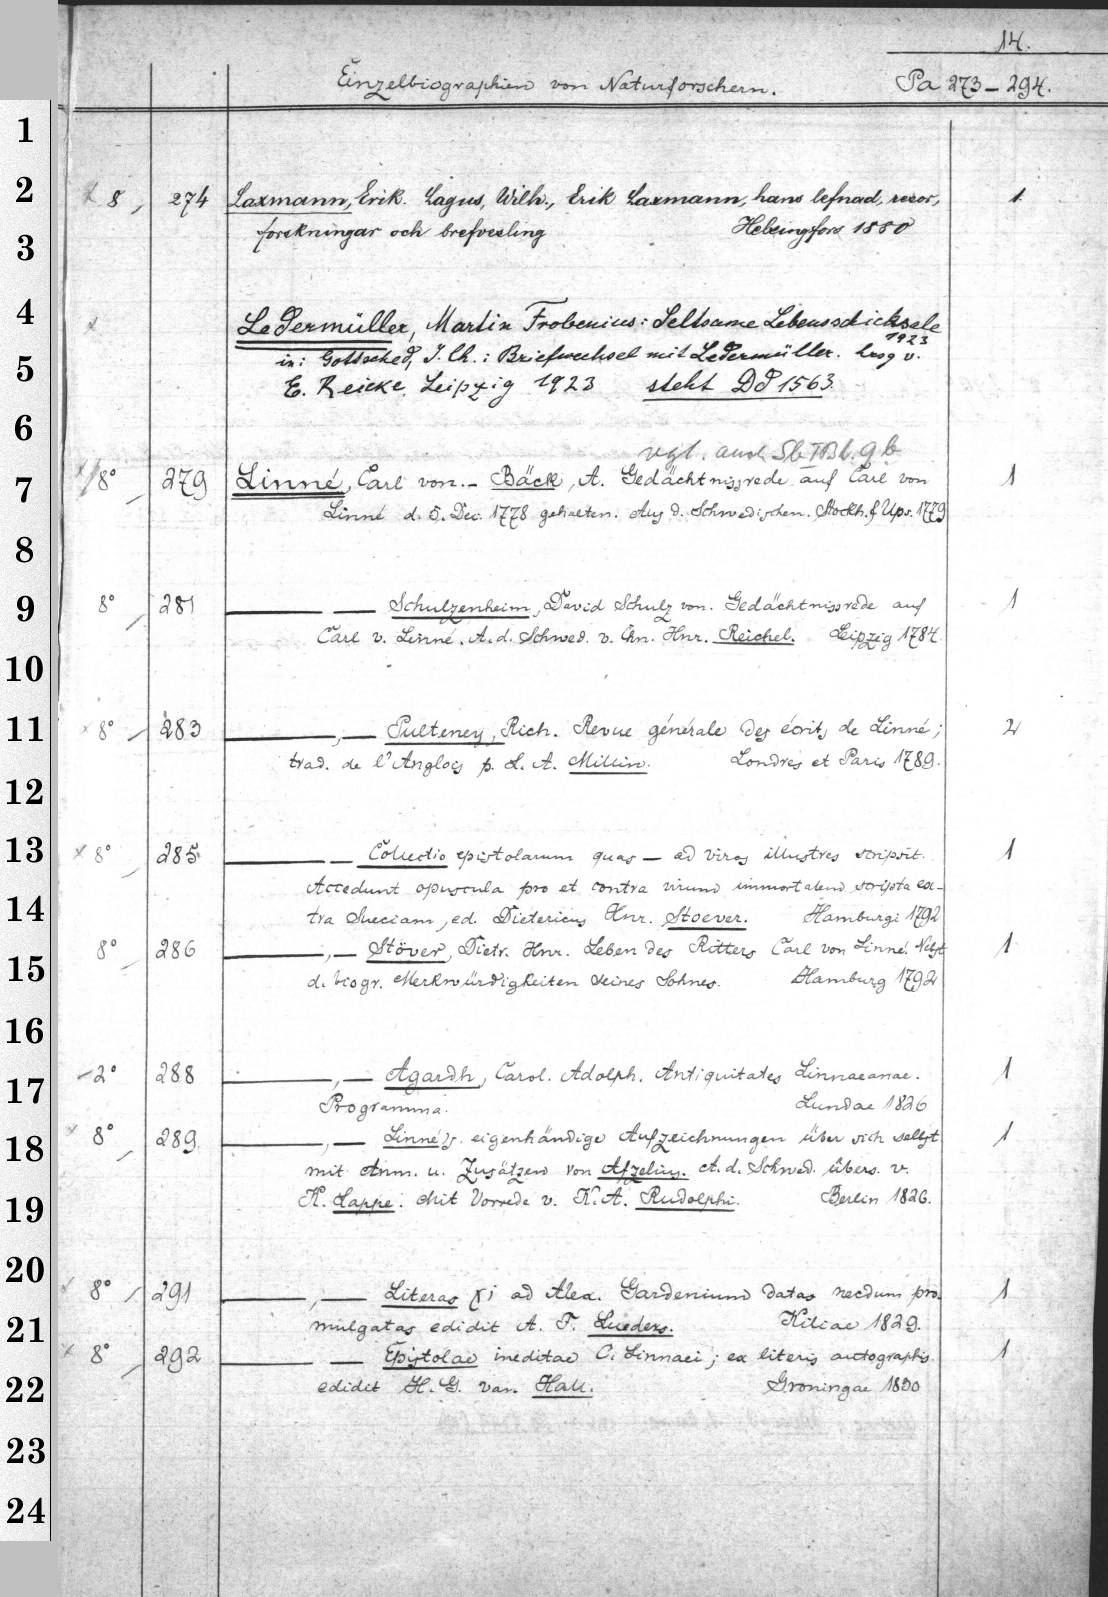 14.
Einzelbiographien von Naturforschern. Pa 273-294.
1
2
3
4
5
6
7
8
9
10
11
12
13
14
15
16
17
18
19
20
21
22
23
24
x 8, 274 Laxmann, Erik. Lagus, Wilh., Erik Laxmann, hans lefnad, resor, 1
forskningar och brefvexling Helsingfors 1880
x Ledermüller, Martin Frobenius: Seltsame Lebensschicksale
1923
in: Gottsched, J. Ch.: Briefwechsel mit Ledermüller. hrsg v.
E. Reicke. Leipzig 1923 steht Dd 1563.
vgl. auch Sb I Bl. 9b
x/8° 279 Linné, Carl von. – Bäck, A. Gedächtnissrede auf Carl von 1
Linné d. 5. Dec. 1778 gehalten. Aus d. Schwedischen. Stockh. & Ups. 1779
8° 281 ——— — Schulzenheim, David Schulz von. Gedächtnissrede auf 1
Carl v. Linné. A. d. Schwed. v. Chn. Hnr. Reichel. Leipzig 1784.
x 8° 283 ———, — Pulteney, Rich. Revue générale des écrits de Linné; 2
trad. de l'Anglois p. L. A. Millin. Londres et Paris 1789.
x 8° 285 ——— — Collectio epistolarum quas — ad viros illustres scripsit. 1
Accedunt opuscula pro et contra virum immortalem scripta ex-
tra Sueciam, ed. Dietericus Hnr. Stoever. Hamburgi 1792
8° 286 ———, — Stöver, Dietr. Hnr. Leben des Ritters Carl von Linné. Nebst 1
d. biogr. Merkwürdigkeiten seines Sohnes. Hamburg 1792
2° 288 ———, — Agardh, Carol. Adolph. Antiquitates Linnaeanae. 1
Programma. Lundae 1826
x 8° 289. ———, — Linné's eigenhändige Aufzeichnungen über sich selbst 1
mit Anm. u. Zusätzen von Afzelius. A. d. Schwed. übers. v.
K. Lappe. Mit Vorrede v. K. A. Rudolphi. Berlin 1826.
x 8° 291 ———, — Literas xi ad Alex. Gardenium datas necdum pro- 1
mulgatas edidit A. F. Lueders. Kiliae 1829.
x 8° 292 ——— — Epistolae ineditae C. Linnaei; ex literis autographis 1
edidit H. G. van. Hall. Groningae 1830